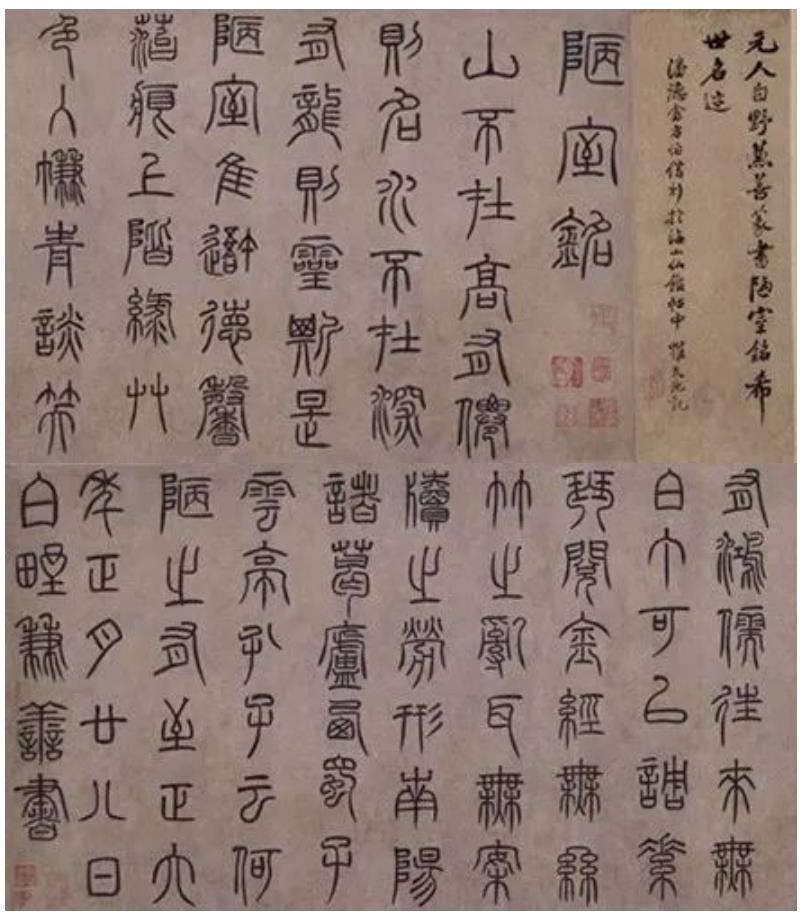 元人白野兼善篆書陋室銘希
世名迹
潘德畬方伯借刻於海山仙館帖中 羅天池記
陋室銘
山不在高有僊
則名水不在深
有龍則靈斯是
陋室隹吾德馨
菭痕上階緑艸
色入簾青談笑
有鴻儒往來無
白丁可以調素
琴閱金經無絲
竹之亂耳無案
牘之勞形南陽
諸葛廬西蜀子
雲亭孔子云何
陋之有至正六
年正月廿八日
白野兼善書